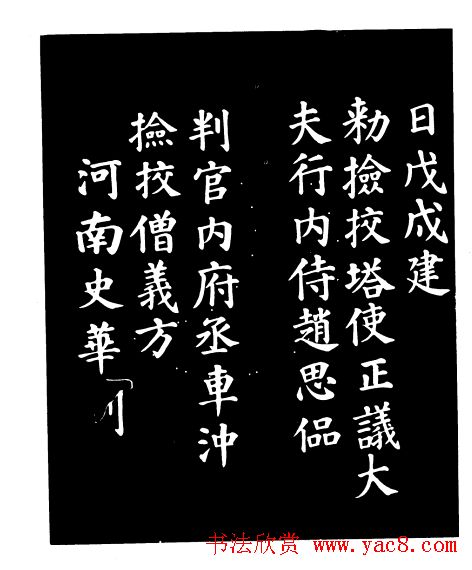 日戊戌建
勑撿挍塔使正議大
夫行内侍趙思偘
判官内府丞車沖
撿挍僧義方
河南史華
书法欣赏 www.yac8.com